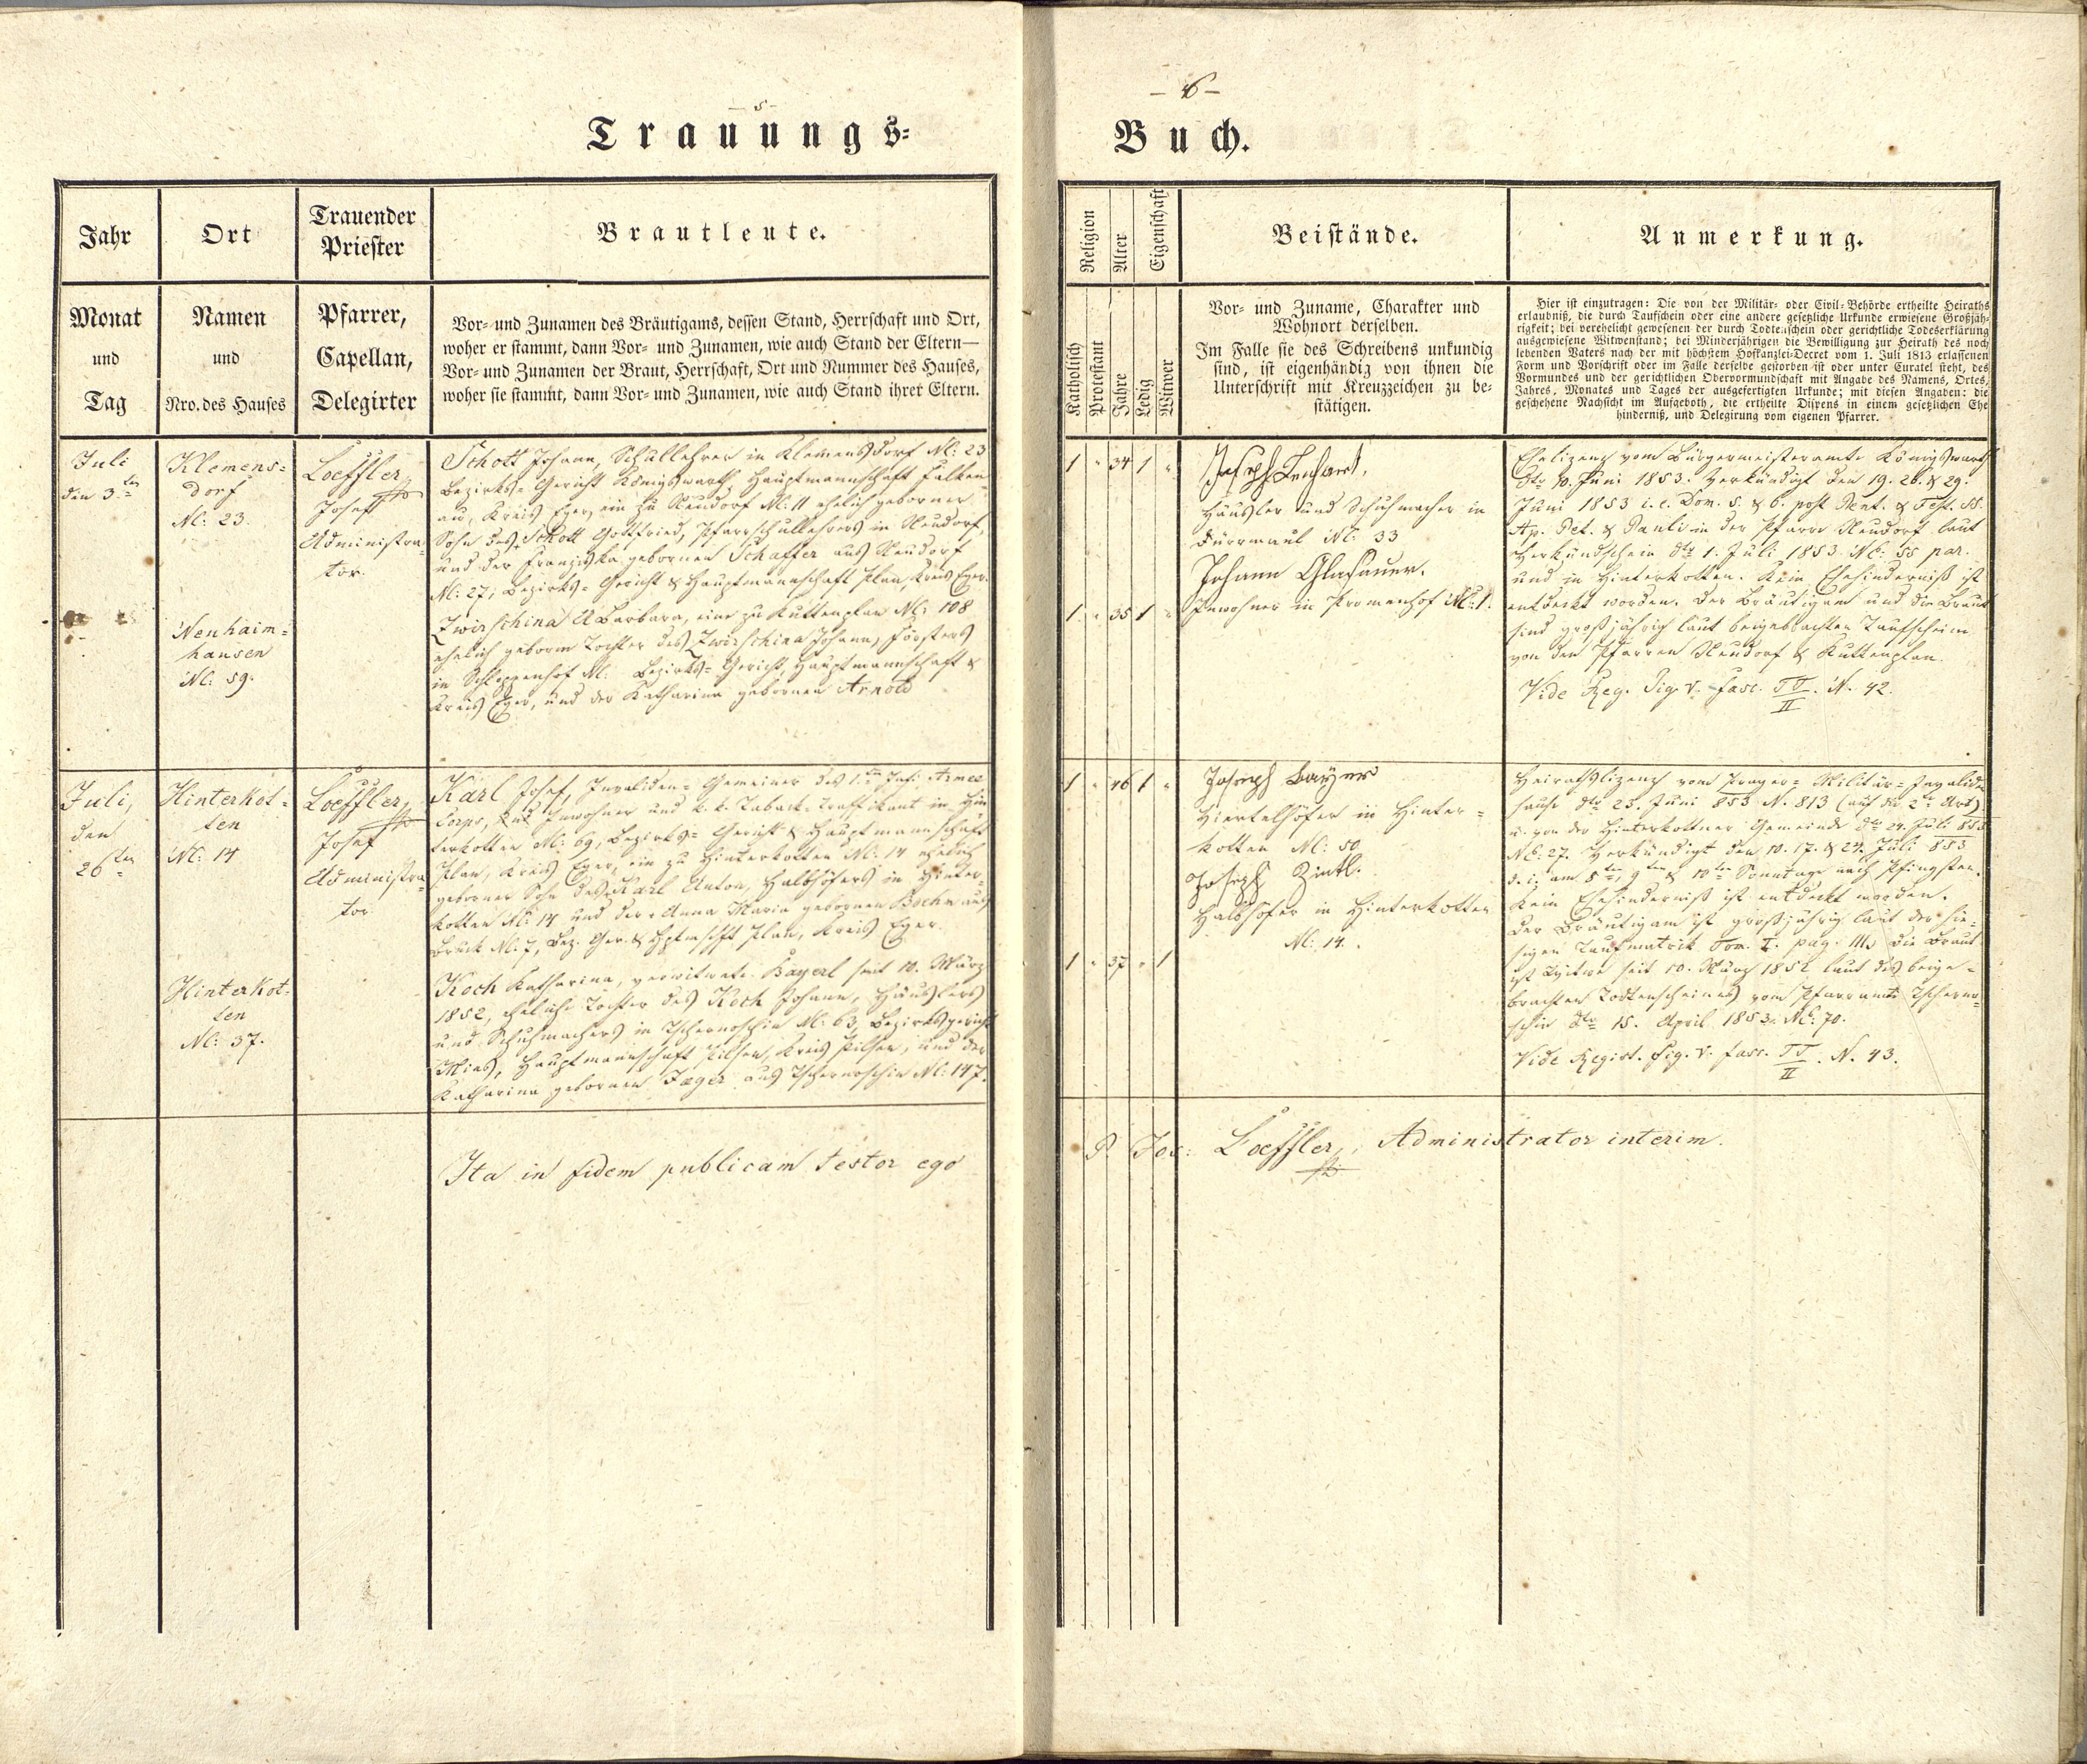 - 5 -
Trauungs-
Jahr
Ort
Trauender
Priester
Brautleute.
Monat
und
Tag
Namen
und
Nro. des Hauses
Pfarrer,
Capellan,
Delegirter
Vor- und Zunamen des Bräutigams, dessen Stand, Herrschaft und Ort,
woher er stammt, dann Vor- und Zunamen, wie auch Stand der Eltern—
Vor- und Zunamen der Braut, Herrschaft, Ort und Nummer des Hauses,
woher sie stammt, dann Vor- und Zunamen, wie auch Stand ihrer Eltern.
Juli
den 3ten
Klemens=
dorf
N: 23.
Neuhaim=
hausen
N: 59.
Loeffler,
Josef
Administra=
tor.
Schott Johann, Schullehrer in Klemensdorf N: 23
Bezirks= Gericht Königswarth, Hauptmannschaft Falken=
au, Kreis Eger, ein zu Neudorf N: 11 ehelich geborner
Sohn des Schott Gottfried, Pfarrschullehrers in Neudorf,
und der Franziska gebornen Schaffer aus Neudorf
N: 27, Bezirks= Gericht & Hauptmannschaft Plan, Kreis Eger.
Zwirschina Barbara, eine zu Kuttenplan N: 108
ehelich geborne Tochter des Zwirschina Johann, Försters
in N: Bezirks= Gericht, Hauptmannschaft &
Kreis Eger, und der Katharina gebornen Arnold
Juli,
den
26ten
Hinterkot=
ten
N: 14
Hinterkot=
ten
N: 37.
Loeffler,
Josef
Administra=
tor
Karl Josef, Invaliden= Gemeiner des Armee
Corps, Inwohner und k. k. Taback= Traffikant in Hin
terkotten N: 69, Bezirks= Gericht & Hauptmannschaft
Plan, Kreis Eger, ein zu Hinterkotten N: 14 ehelich
geborner Sohn des Karl Anton, Halbhöfers in Hinter=
kotten N: 14 und der Anna Maria gebornen aus
Bruck N: 7, Bez. Ger. & Plan, Kreis Eger.
Koch Katharina, verwitwete Bayerl seit 10. März
1852, eheliche Tochter des Koch Johann, Häuslers
und Schuhmachers in Tschernoschin N: 63, Bezirksgericht
Mies, Hauptmannschaft Pilsen, Kreis Pilsen, und der
Katharina gebornen Jæger aus Tschernoschin N: 147.
Ita in fidem publicam testor ego
- 6 -
Buch.
Religion
Alter
Eigenschaft
Beistände.
Anmerkung.
Katholisch
Protestant
Jahre
Ledig
Witwer
Vor- und Zuname, Charakter und
Wohnort derselben.
Im Falle sie des Schreibens unkundig
sind, ist eigenhändig von ihnen die
Unterschrift mit Kreuzzeichen zu be-
stätigen.
Hier ist einzutragen: Die von der Militär- oder Civil-Behörde ertheilte Heiraths
erlaubniß, die durch Taufschein oder eine andere gesetzliche Urkunde erwiesene Großjäh-
rigkeit; bei verehelicht gewesenen der durch Todtenschein oder gerichtliche Todeserklärung
ausgewiesene Witwenstand; bei Minderjährigen die Bewilligung zur Heirath des noch
lebenden Vaters nach der mit höchstem Hofkanzlei-Decret vom 1. Juli 1813 erlassenen
Form und Vorschrift oder im Falle derselbe gestorben ist oder unter Curatel steht, des
Vormundes und der gerichtlichen Obervormundschaft mit Angabe des Namens, Ortes,
Jahres, Monates und Tages der ausgefertigten Urkunde; mit diesen Angaben: die
geschehene Nachsicht im Aufgeboth, die ertheilte Dispens in einem gesetzlichen Ehe
hinderniß, und Delegirung vom eigenen Pfarrer.
1 " 34 1 "
1 " 35 1 "
Joseph Lenhart.
Häusler und Schuhmacher in
Dürrmaul N: 33
Johann Glasauer.
Inwohner in Promenhof N: 1.
Ehelizenz vom Bürgermeisteramte Königswarth
dto 10. Juni 1853. Verkündigt den 19. 26. & 29.
Juni 1853 i. e. Dom. 5. & 6. post Pent. & Fest. SS.
Ap. Pet. & Pauli in der Pfarre Neudorf laut
Verkündschein dto 1. Juli 1853 N: 55 par.
und in Hinterkotten. Kein Ehehinderniß ist
entdeckt worden. Der Bräutigam und die Braut
sind großjährig laut beigebrachten Taufscheinen
von den Pfarren Neudorf & Kuttenplan.
Vide Reg. Sig. V. fasc. II. N. 42.
1 " 46 1 "
1 " 37 " 1
Joseph Bayer
Viertelhöfer in Hinter=
kotten N: 50
Joseph Zintl.
Halbhöfer in Hinterkotten
N: 14.
Heirathslizenz vom Prager= Militär= Invaliden
hause dto 25. Juni 853 N. 813 (auf die 2te Art)
u. von der Hinterkottner Gemeinde dto 24. Juli 853
N: 27. Verkündigt den 10. 17. & 24. Juli 853
d. i. am 8ten, 9ten & 10ten Sonntage nach Pfingsten.
Kein Ehehinderniß ist entdeckt worden.
Der Bräutigam ist großjährig laut der hie=
sigen Taufmatrik Tom. I. pag. 111. Die Braut
ist Witwe seit 10. März 1852 laut des beige=
brachten Todtenscheines vom Pfarramte Tscherno=
schin dto 15. April 1853. N: 70.
Vide Regist. Sig. V. fasc. II. N. 43.
P. Jos: Loeffler, Administrator interim.